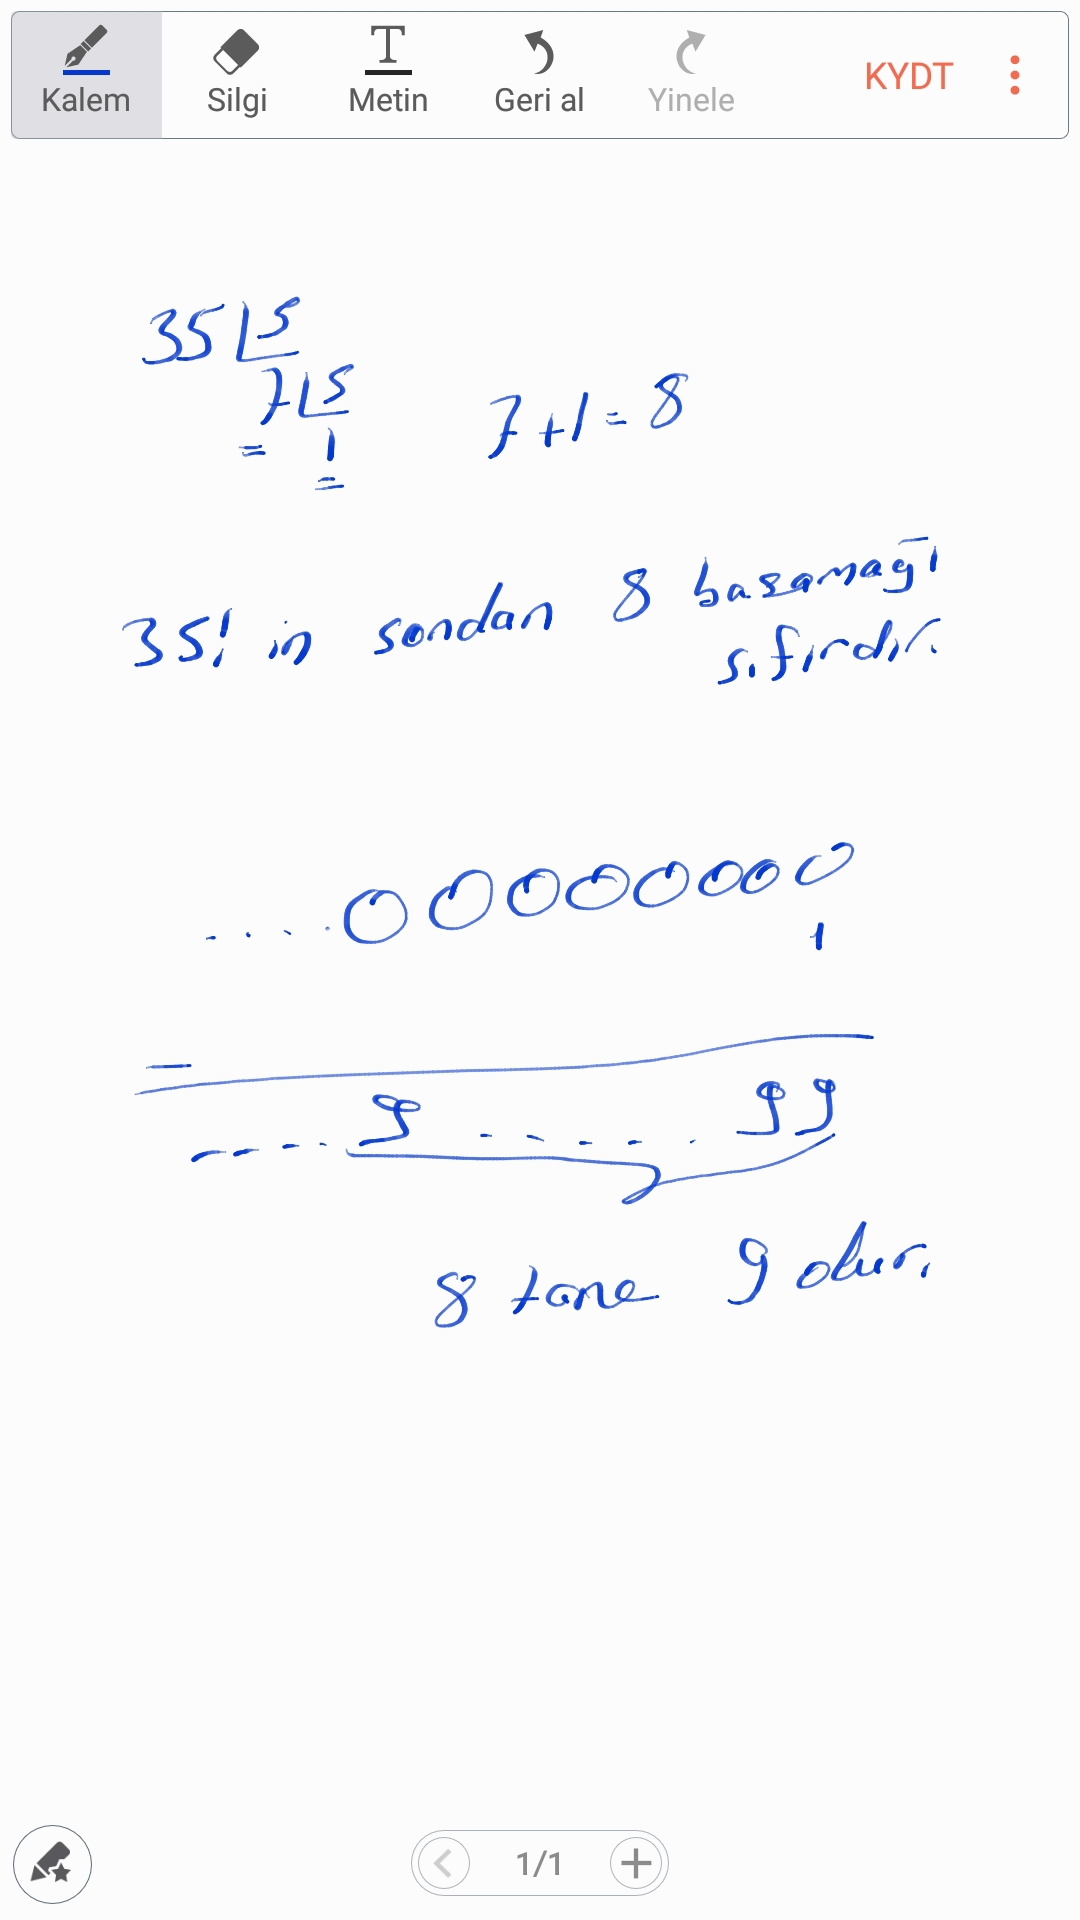 Kalem Silgi Metin Geri al Yinele KYDT
35 | 5
7 | 5
= 1
=
7+1=8
35! in sondan 8 basamağı
sıfırdır.
....00000000
1
-
----9 ..... 99
8 tane 9 olur.
1/1